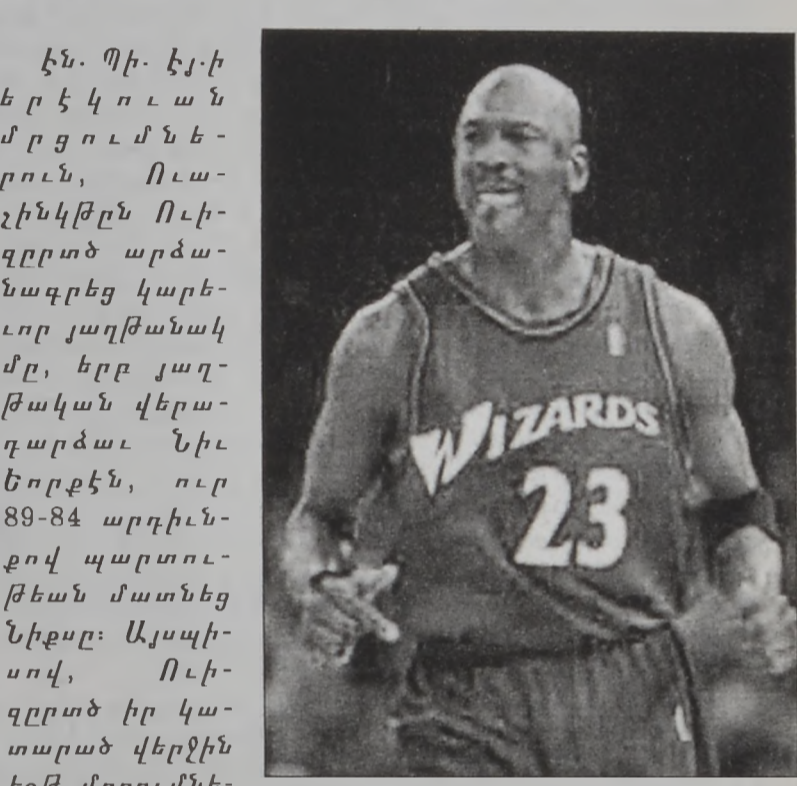 Էն. Պի. Էյ.ի
երէկուան
մրցումնե-
րուն, Ուա-
շինկթըն Ուի-
զըրտծ արձա-
նագրեց կարե-
ւոր յաղթանակ
մը, երբ յաղ-
թական վերա-
դարձաւ Նիւ
Եորքէն, ուր
89-84 արդիւն-
քով պարտու-
թեան մատնեց
Նիքսը։ Այսպի-
սով, Ուի-
զըրտծ իր կա-
տարած վերջին
WIZARDS
23